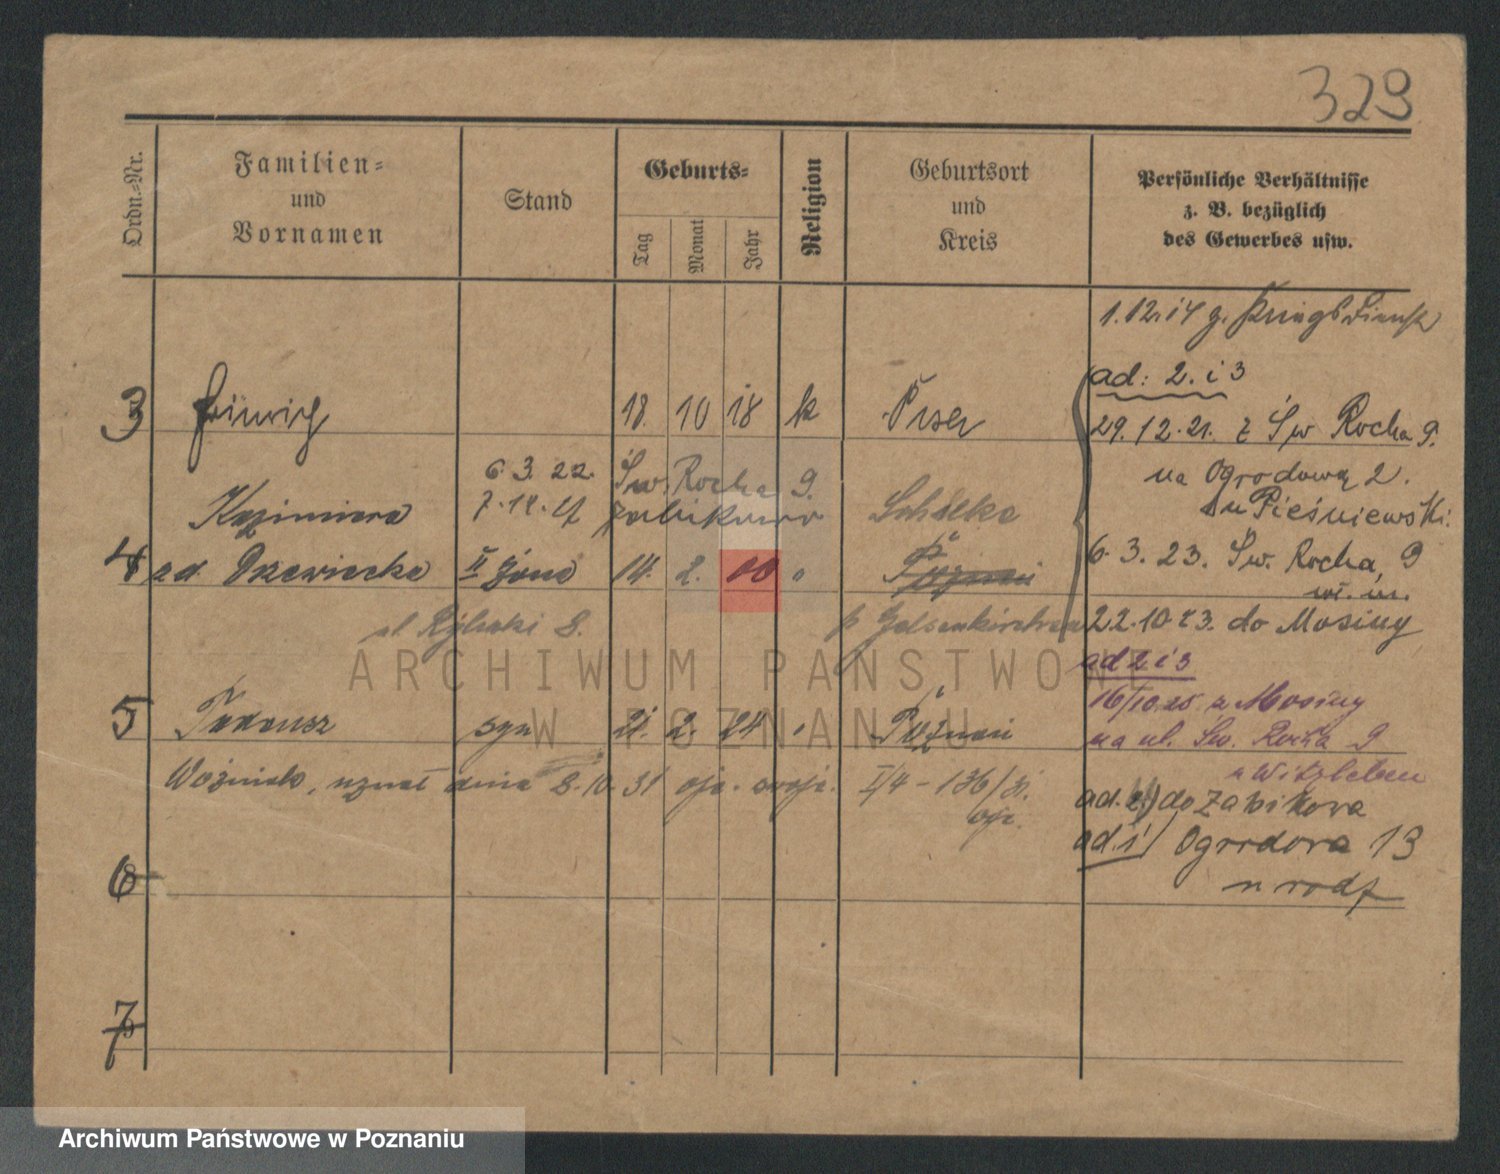 329
Ordn.-Nr.
Familien-
und
Vornamen
Stand
Geburts-
Tag
Monat
Jahr
Religion
Geburtsort
und
Kreis
Persönliche Verhältnisse
z. B. bezüglich
des Gewerbes usw.
1.12.14 z. Kriegsdienst
ad: 2. i 3
3
18. 10 18 k
29. 12. 21. z Św Rocha 9.
na Ogrodową 2.
u Pieśniewski.
6 3. 22. Św. Rocha 9.
Żabikowo
Kazimiera
4 z d. Drzewiecka II żona 14. 2. 00 "
Poznań
6. 3. 23. Św. Rocha, 9
wł. m.
p Gelsenkirchen
22. 10. 23. do Mosiny
ul Rybaki 8.
ad 2 i 3
16/10 25 z Mosiny
na ul. Św. Rocha 9
u Witzleben
5 Tadeusz syn 21. 2. 24 " Poznań
Woźniak, uznał dnia 8. 10. 31 ojc. swoje. I/4 - 136/31.
ojc.
ad. 2) do Żabikowa
ad. 1/ Ogrodowa 13
u rodz
6
7
ARCHIWUM PAŃSTWOWE
W POZNANIU
Archiwum Państwowe w Poznaniu